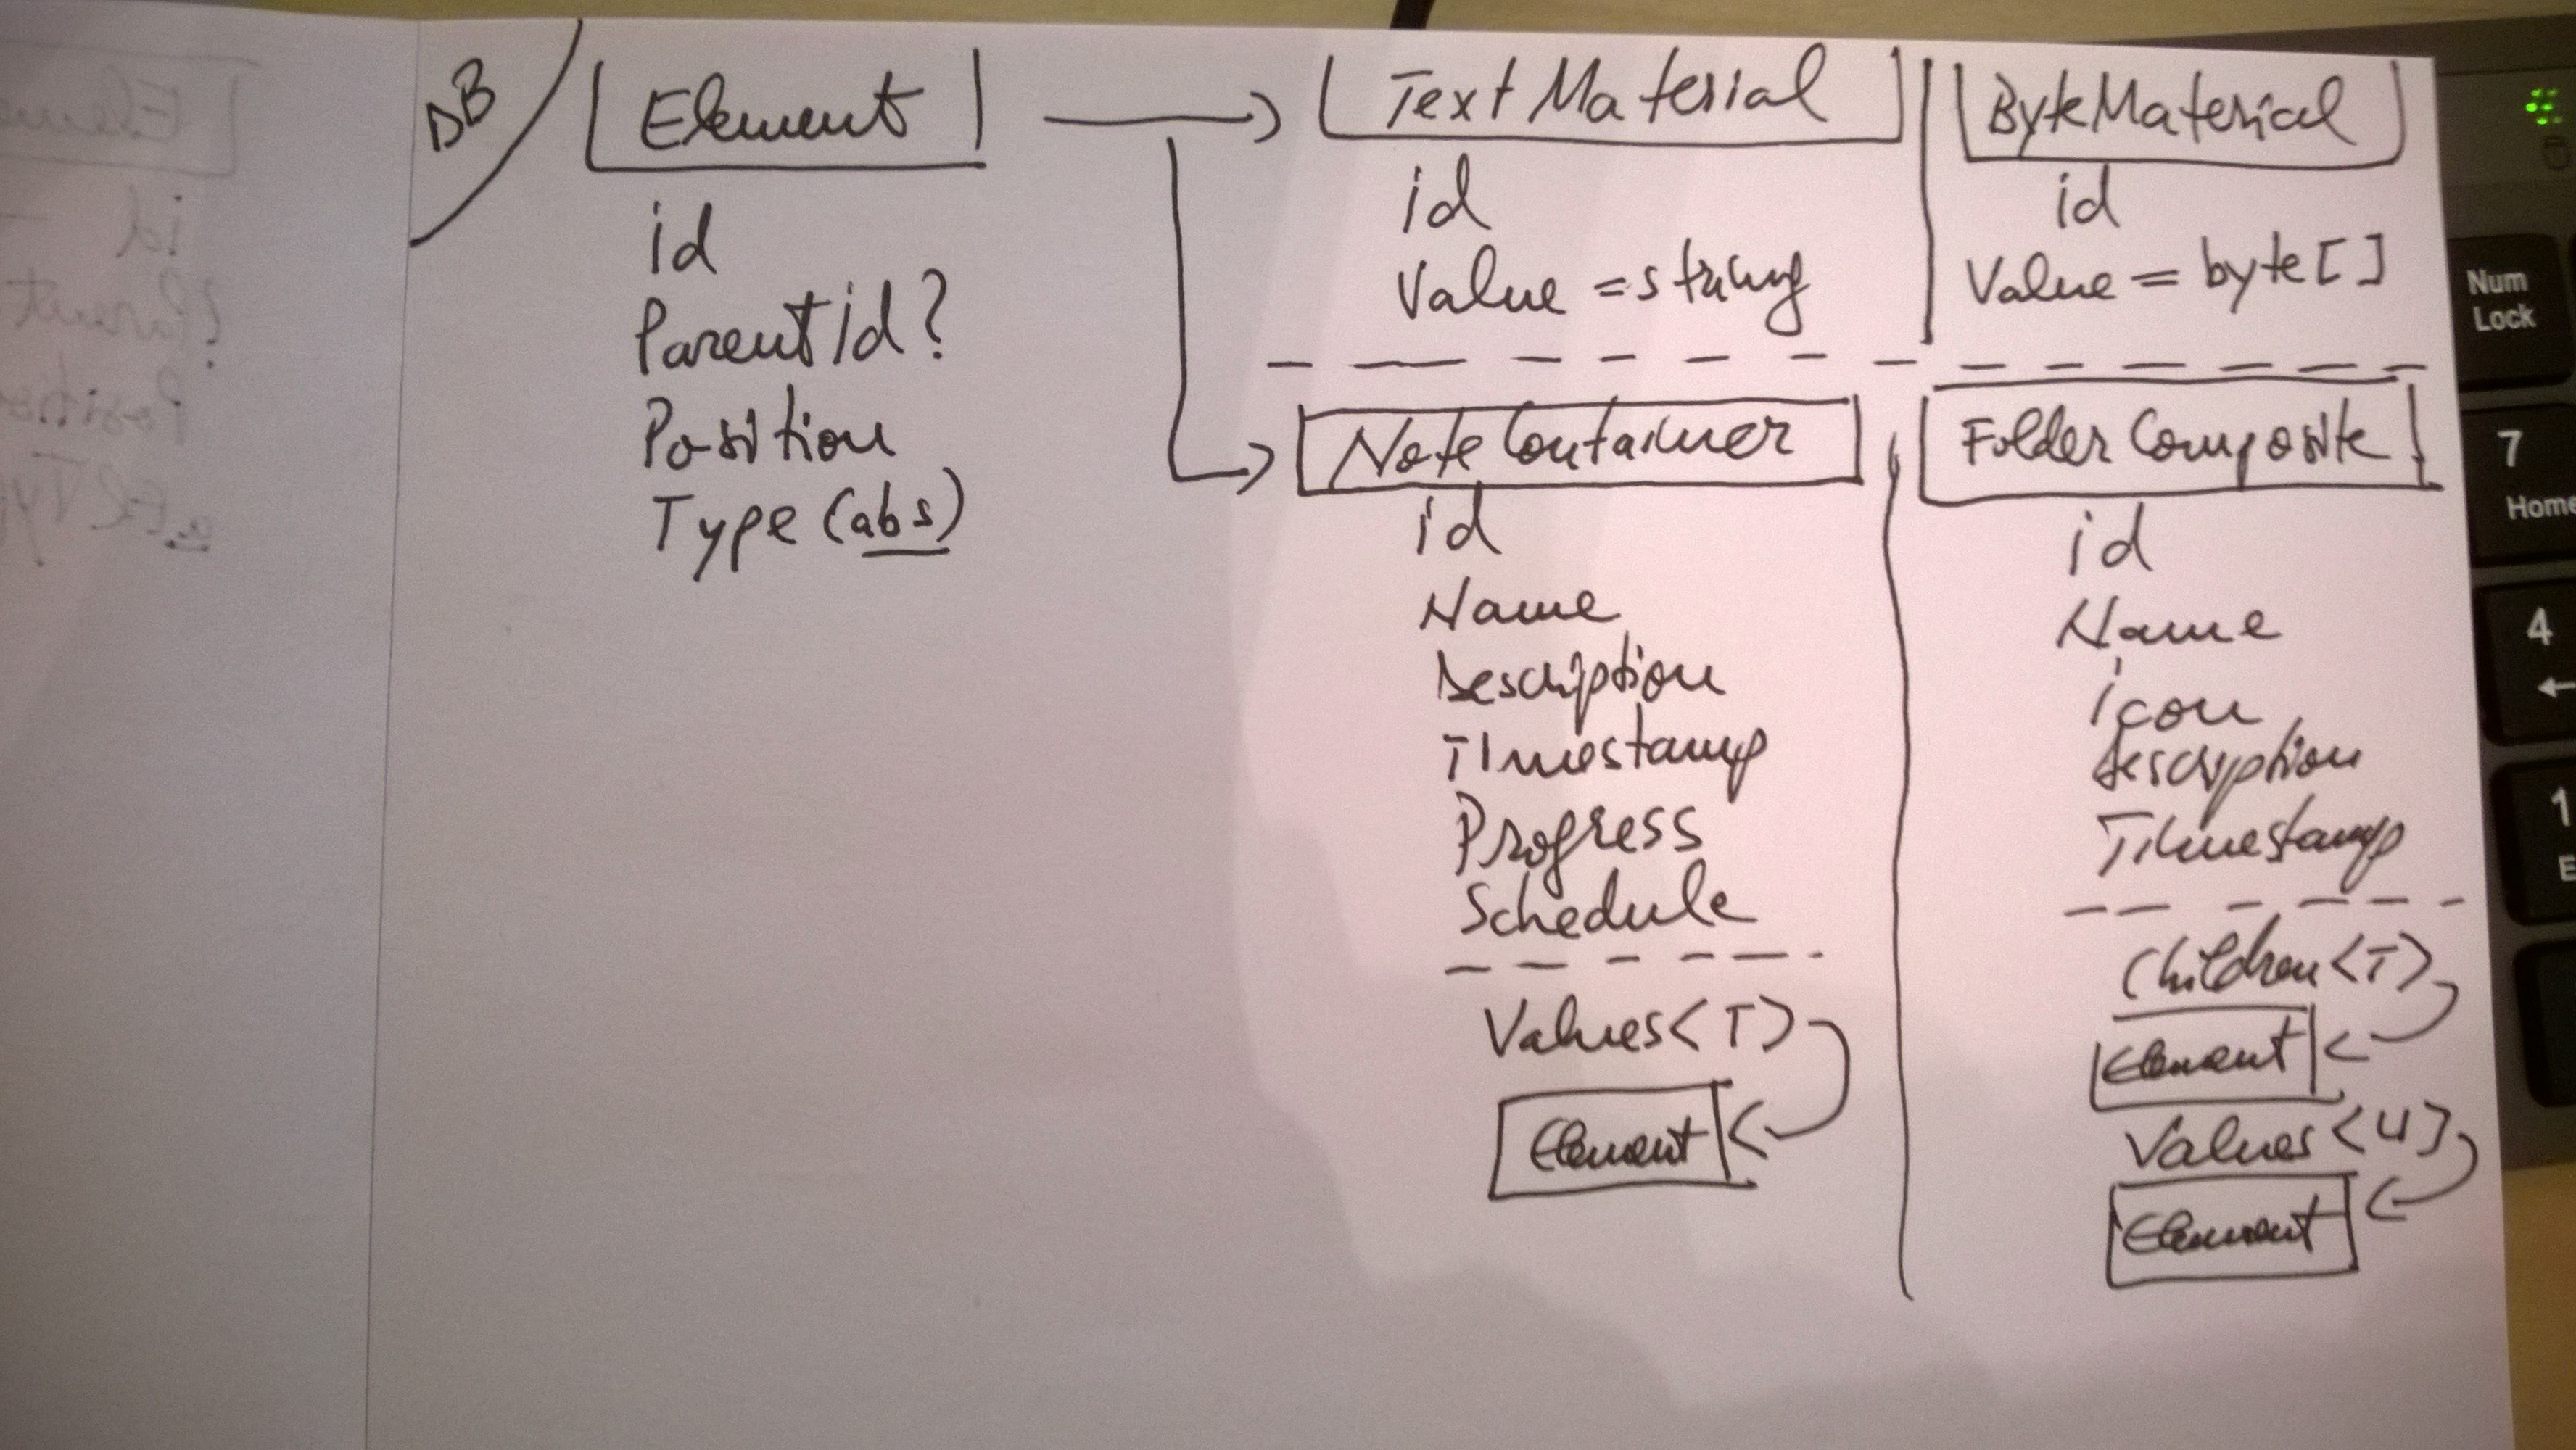 DB
Element
id
Parentid?
Position
Type (abs)
TextMaterial
id
Value = string
ByteMaterial
id
Value = byte[]
NoteContainer
id
Name
Description
Timestamp
Progress
Schedule
Values<T>
Element
FolderComposite
id
Name
icon
description
Timestamp
Children<T>
Element
Values<U>
Element
Num
Lock
7
Home
4
←
1
E
Eleme
id
Parent
Positio